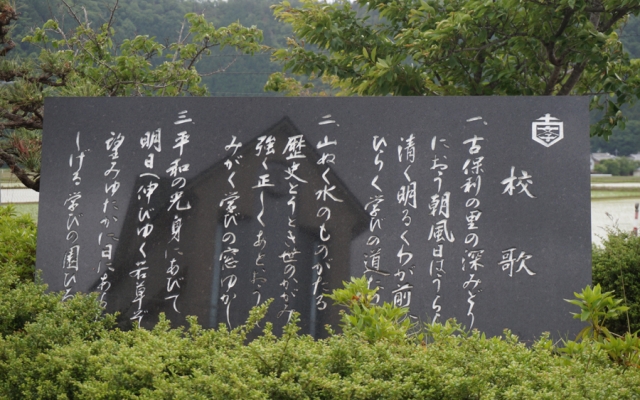 校歌
一、古保利の里の深みどり
におう朝風日はうらら
清く明るくわが前に
ひらく学びの道た
二、山ぬく水のものがたる
歴史とうとき世のかがみ
強く正しくあとおう
みがく学びの窓ゆかし
三、平和の光身にあびて
明日へ伸びゆく若草ぞ
望みゆたかに日にあら
しげる学びの園ひろ